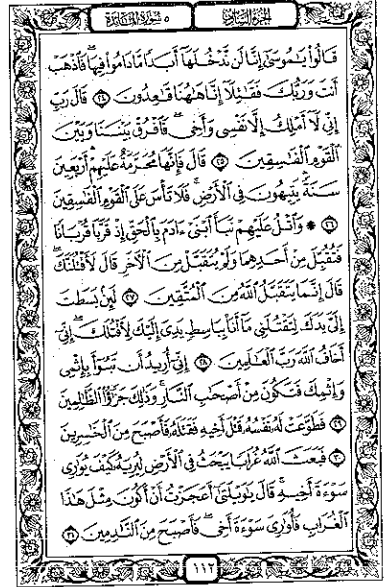 الجزء السادس ٥ سورة المائدة
قَالُوا۟ يَـٰمُوسَىٰٓ إِنَّا لَن نَّدْخُلَهَآ أَبَدًا مَّا دَامُوا۟ فِيهَا ۖ فَٱذْهَبْ
أَنتَ وَرَبُّكَ فَقَـٰتِلَآ إِنَّا هَـٰهُنَا قَـٰعِدُونَ ٢٤ قَالَ رَبِّ
إِنِّى لَآ أَمْلِكُ إِلَّا نَفْسِى وَأَخِى ۖ فَٱفْرُقْ بَيْنَنَا وَبَيْنَ
ٱلْقَوْمِ ٱلْفَـٰسِقِينَ ٢٥ قَالَ فَإِنَّهَا مُحَرَّمَةٌ عَلَيْهِمْ ۛ أَرْبَعِينَ
سَنَةً ۛ يَتِيهُونَ فِى ٱلْأَرْضِ ۚ فَلَا تَأْسَ عَلَى ٱلْقَوْمِ ٱلْفَـٰسِقِينَ
٢٦ ۞ وَٱتْلُ عَلَيْهِمْ نَبَأَ ٱبْنَىْ ءَادَمَ بِٱلْحَقِّ إِذْ قَرَّبَا قُرْبَانًا
فَتُقُبِّلَ مِنْ أَحَدِهِمَا وَلَمْ يُتَقَبَّلْ مِنَ ٱلْـَٔاخَرِ قَالَ لَأَقْتُلَنَّكَ ۖ
قَالَ إِنَّمَا يَتَقَبَّلُ ٱللَّهُ مِنَ ٱلْمُتَّقِينَ ٢٧ لَئِنۢ بَسَطتَ
إِلَىَّ يَدَكَ لِتَقْتُلَنِى مَآ أَنَا۠ بِبَاسِطٍ يَدِىَ إِلَيْكَ لِأَقْتُلَكَ ۖ إِنِّىٓ
أَخَافُ ٱللَّهَ رَبَّ ٱلْعَـٰلَمِينَ ٢٨ إِنِّىٓ أُرِيدُ أَن تَبُوٓأَ بِإِثْمِى
وَإِثْمِكَ فَتَكُونَ مِنْ أَصْحَـٰبِ ٱلنَّارِ ۚ وَذَٰلِكَ جَزَٰٓؤُا۟ ٱلظَّـٰلِمِينَ
٢٩ فَطَوَّعَتْ لَهُۥ نَفْسُهُۥ قَتْلَ أَخِيهِ فَقَتَلَهُۥ فَأَصْبَحَ مِنَ ٱلْخَـٰسِرِينَ
٣٠ فَبَعَثَ ٱللَّهُ غُرَابًا يَبْحَثُ فِى ٱلْأَرْضِ لِيُرِيَهُۥ كَيْفَ يُوَٰرِى
سَوْءَةَ أَخِيهِ ۚ قَالَ يَـٰوَيْلَتَىٰٓ أَعَجَزْتُ أَنْ أَكُونَ مِثْلَ هَـٰذَا
ٱلْغُرَابِ فَأُوَٰرِىَ سَوْءَةَ أَخِى ۖ فَأَصْبَحَ مِنَ ٱلنَّـٰدِمِينَ ٣١
١١٢